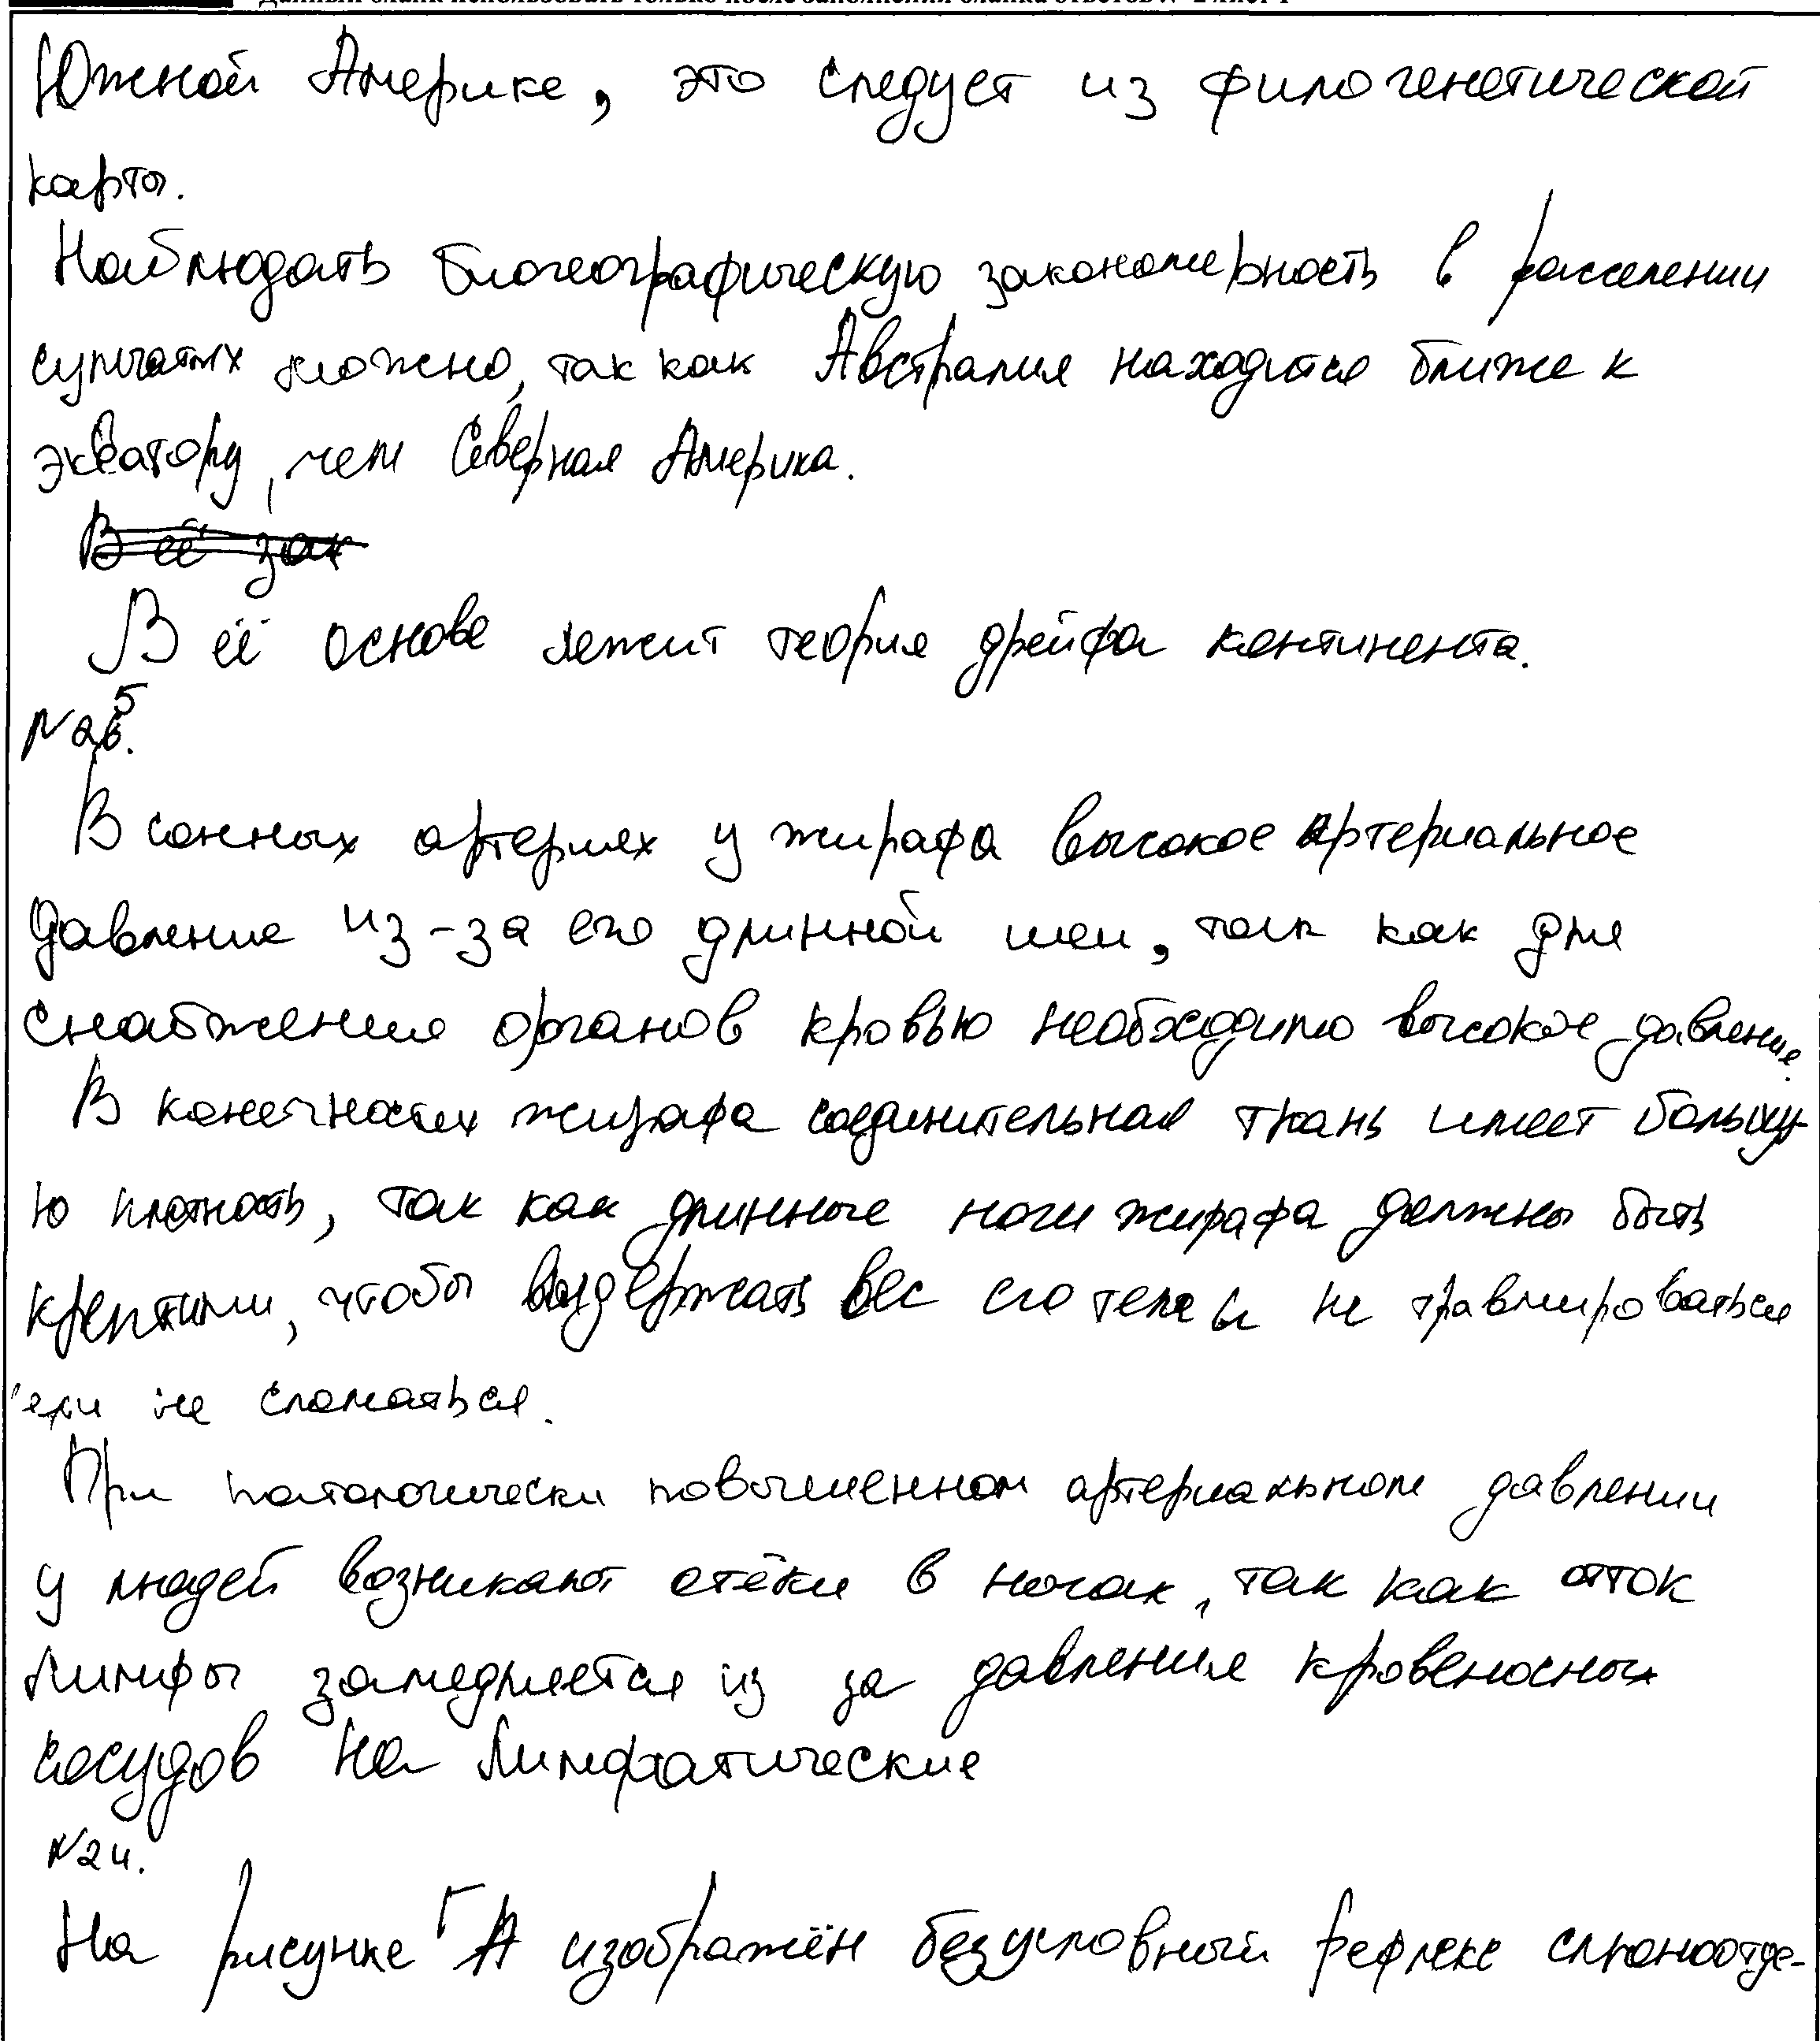 Южной Америке, это следует из филогенетической
карты.
Наблюдать биогеографическую закономерность в расселении
сумчатых можно, так как Австралия находится ближе к
экватору, чем Северная Америка.
В её зак
В её основе лежит теория дрейфа континента.
N 25.
В сонных артериях у жирафа высокое артериальное
давление из-за его длинной шеи, так как для
снабжения органов кровью необходимо высокое давление.
В конечностях жирафа соединительная ткань имеет большу-
ю плотность, так как длинные ноги жирафа должны быть
крепкими, чтобы выдержать вес его тела и не травмироваться
или не сломаться.
При патологически повышенном артериальном давлении
у людей возникают отёки в ногах, так как отток
лимфы замедляется из за давления кровеносных
сосудов на лимфатические
N24.
На рисунке Г изображён безусловный рефлекс слюноотде-